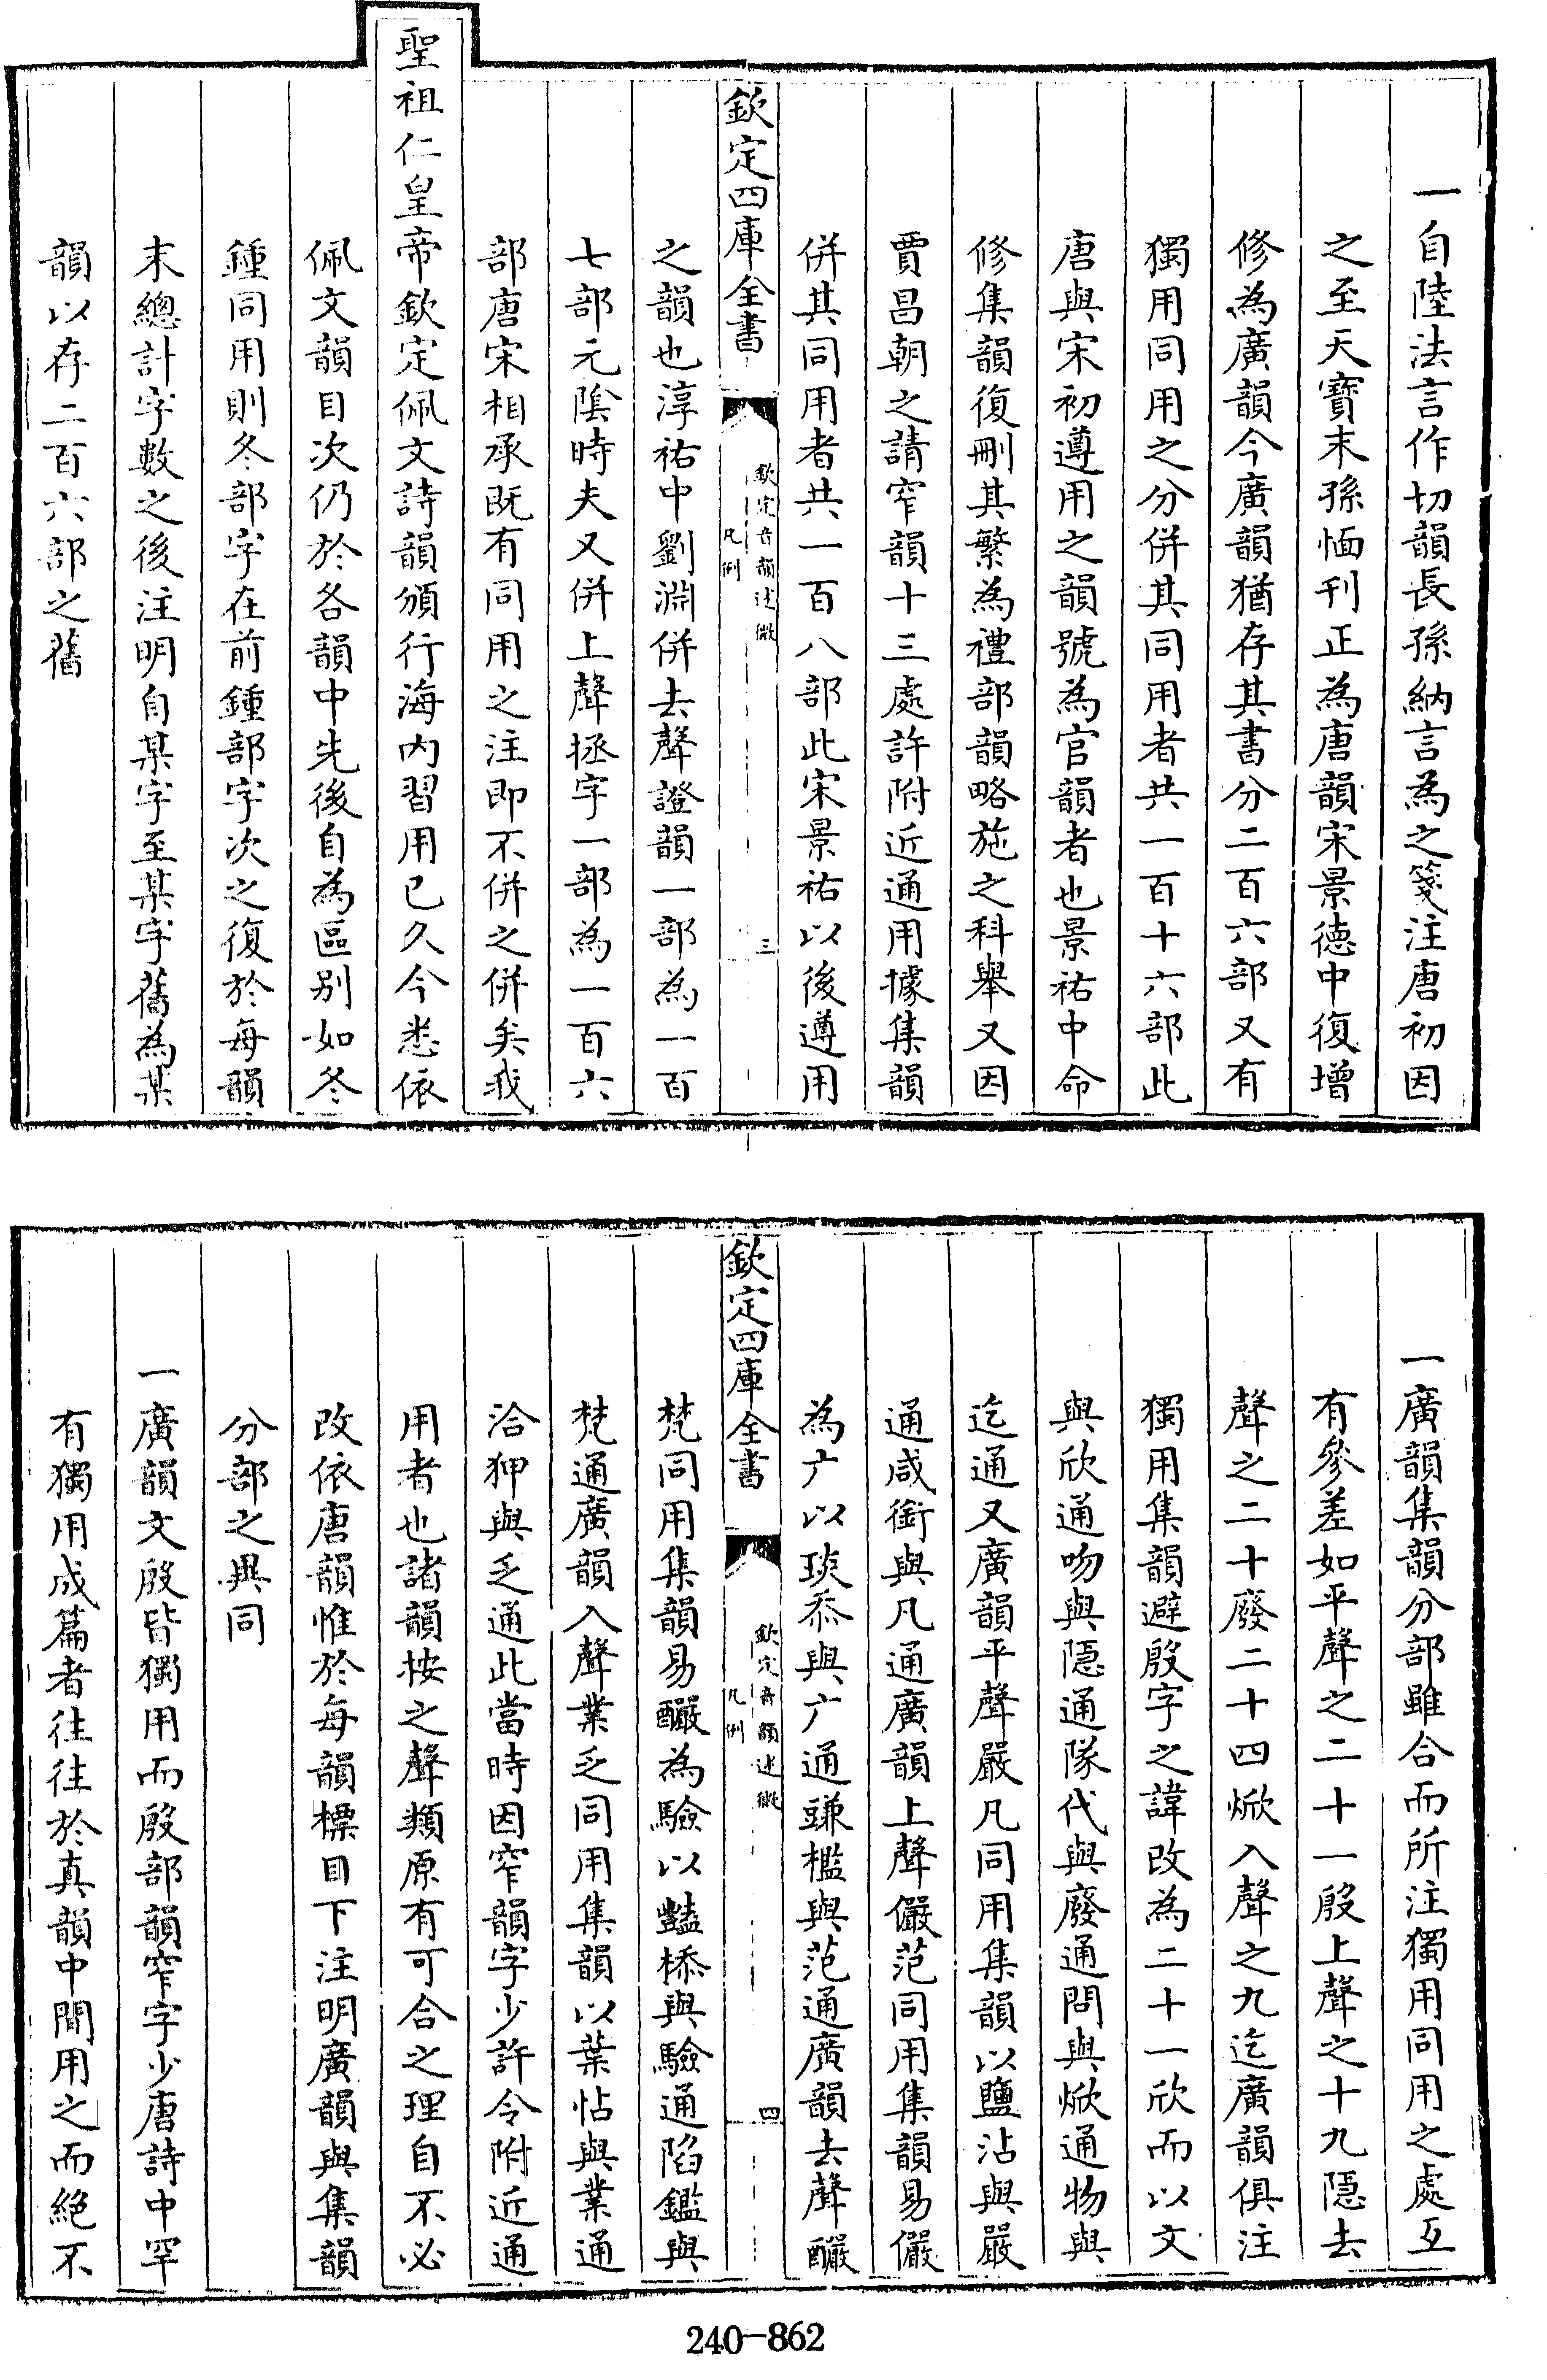 一自陸法言作切韻長孫納言為之箋注唐初因
之至天寶末孫愐刊正為唐韻宋景德中復增
修為廣韻今廣韻猶存其書分二百六部又有
獨用同用之分併其同用者共一百十六部此
唐與宋初遵用之韻號為官韻者也景祐中命
修集韻復刪其繁為禮部韻略施之科舉又因
賈昌朝之請窄韻十三處許附近通用據集韻
併其同用者共一百八部此宋景祐以後遵用
欽定四庫全書
欽定音韻述微
凡例
三
之韻也淳祐中劉淵併去聲證韻一部為一百
七部元陰時夫又併上聲拯字一部為一百六
部唐宋相承既有同用之注即不併之併矣我
聖祖仁皇帝欽定佩文詩韻頒行海內習用已久今悉依
佩文韻目次仍於各韻中先後自為區别如冬
鍾同用則冬部字在前鍾部字次之復於每韻
末總計字數之後注明自某字至某字舊為某
韻以存二百六部之舊
一廣韻集韻分部雖合而所注獨用同用之處互
有參差如平聲之二十一殷上聲之十九隱去
聲之二十廢二十四焮入聲之九迄廣韻俱注
獨用集韻避殷字之諱改為二十一欣而以文
與欣通吻與隱通隊代與廢通問與焮通物與
迄通又廣韻平聲嚴凡同用集韻以鹽沾與嚴
通咸銜與凡通廣韻上聲儼范同用集韻易儼
為广以琰忝與广通豏檻與范通廣韻去聲釅
欽定四庫全書
欽定音韻述微
凡例
四
梵同用集韻易釅為驗以豔㮇與驗通陷鑑與
梵通廣韻入聲業乏同用集韻以葉帖與業通
洽狎與乏通此當時因窄韻字少許令附近通
用者也諸韻按之聲類原有可合之理自不必
改依唐韻惟於每韻標目下注明廣韻與集韻
分部之異同
一廣韻文殷皆獨用而殷部韻窄字少唐詩中罕
有獨用成篇者往往於真韻中間用之而絕不
240-862